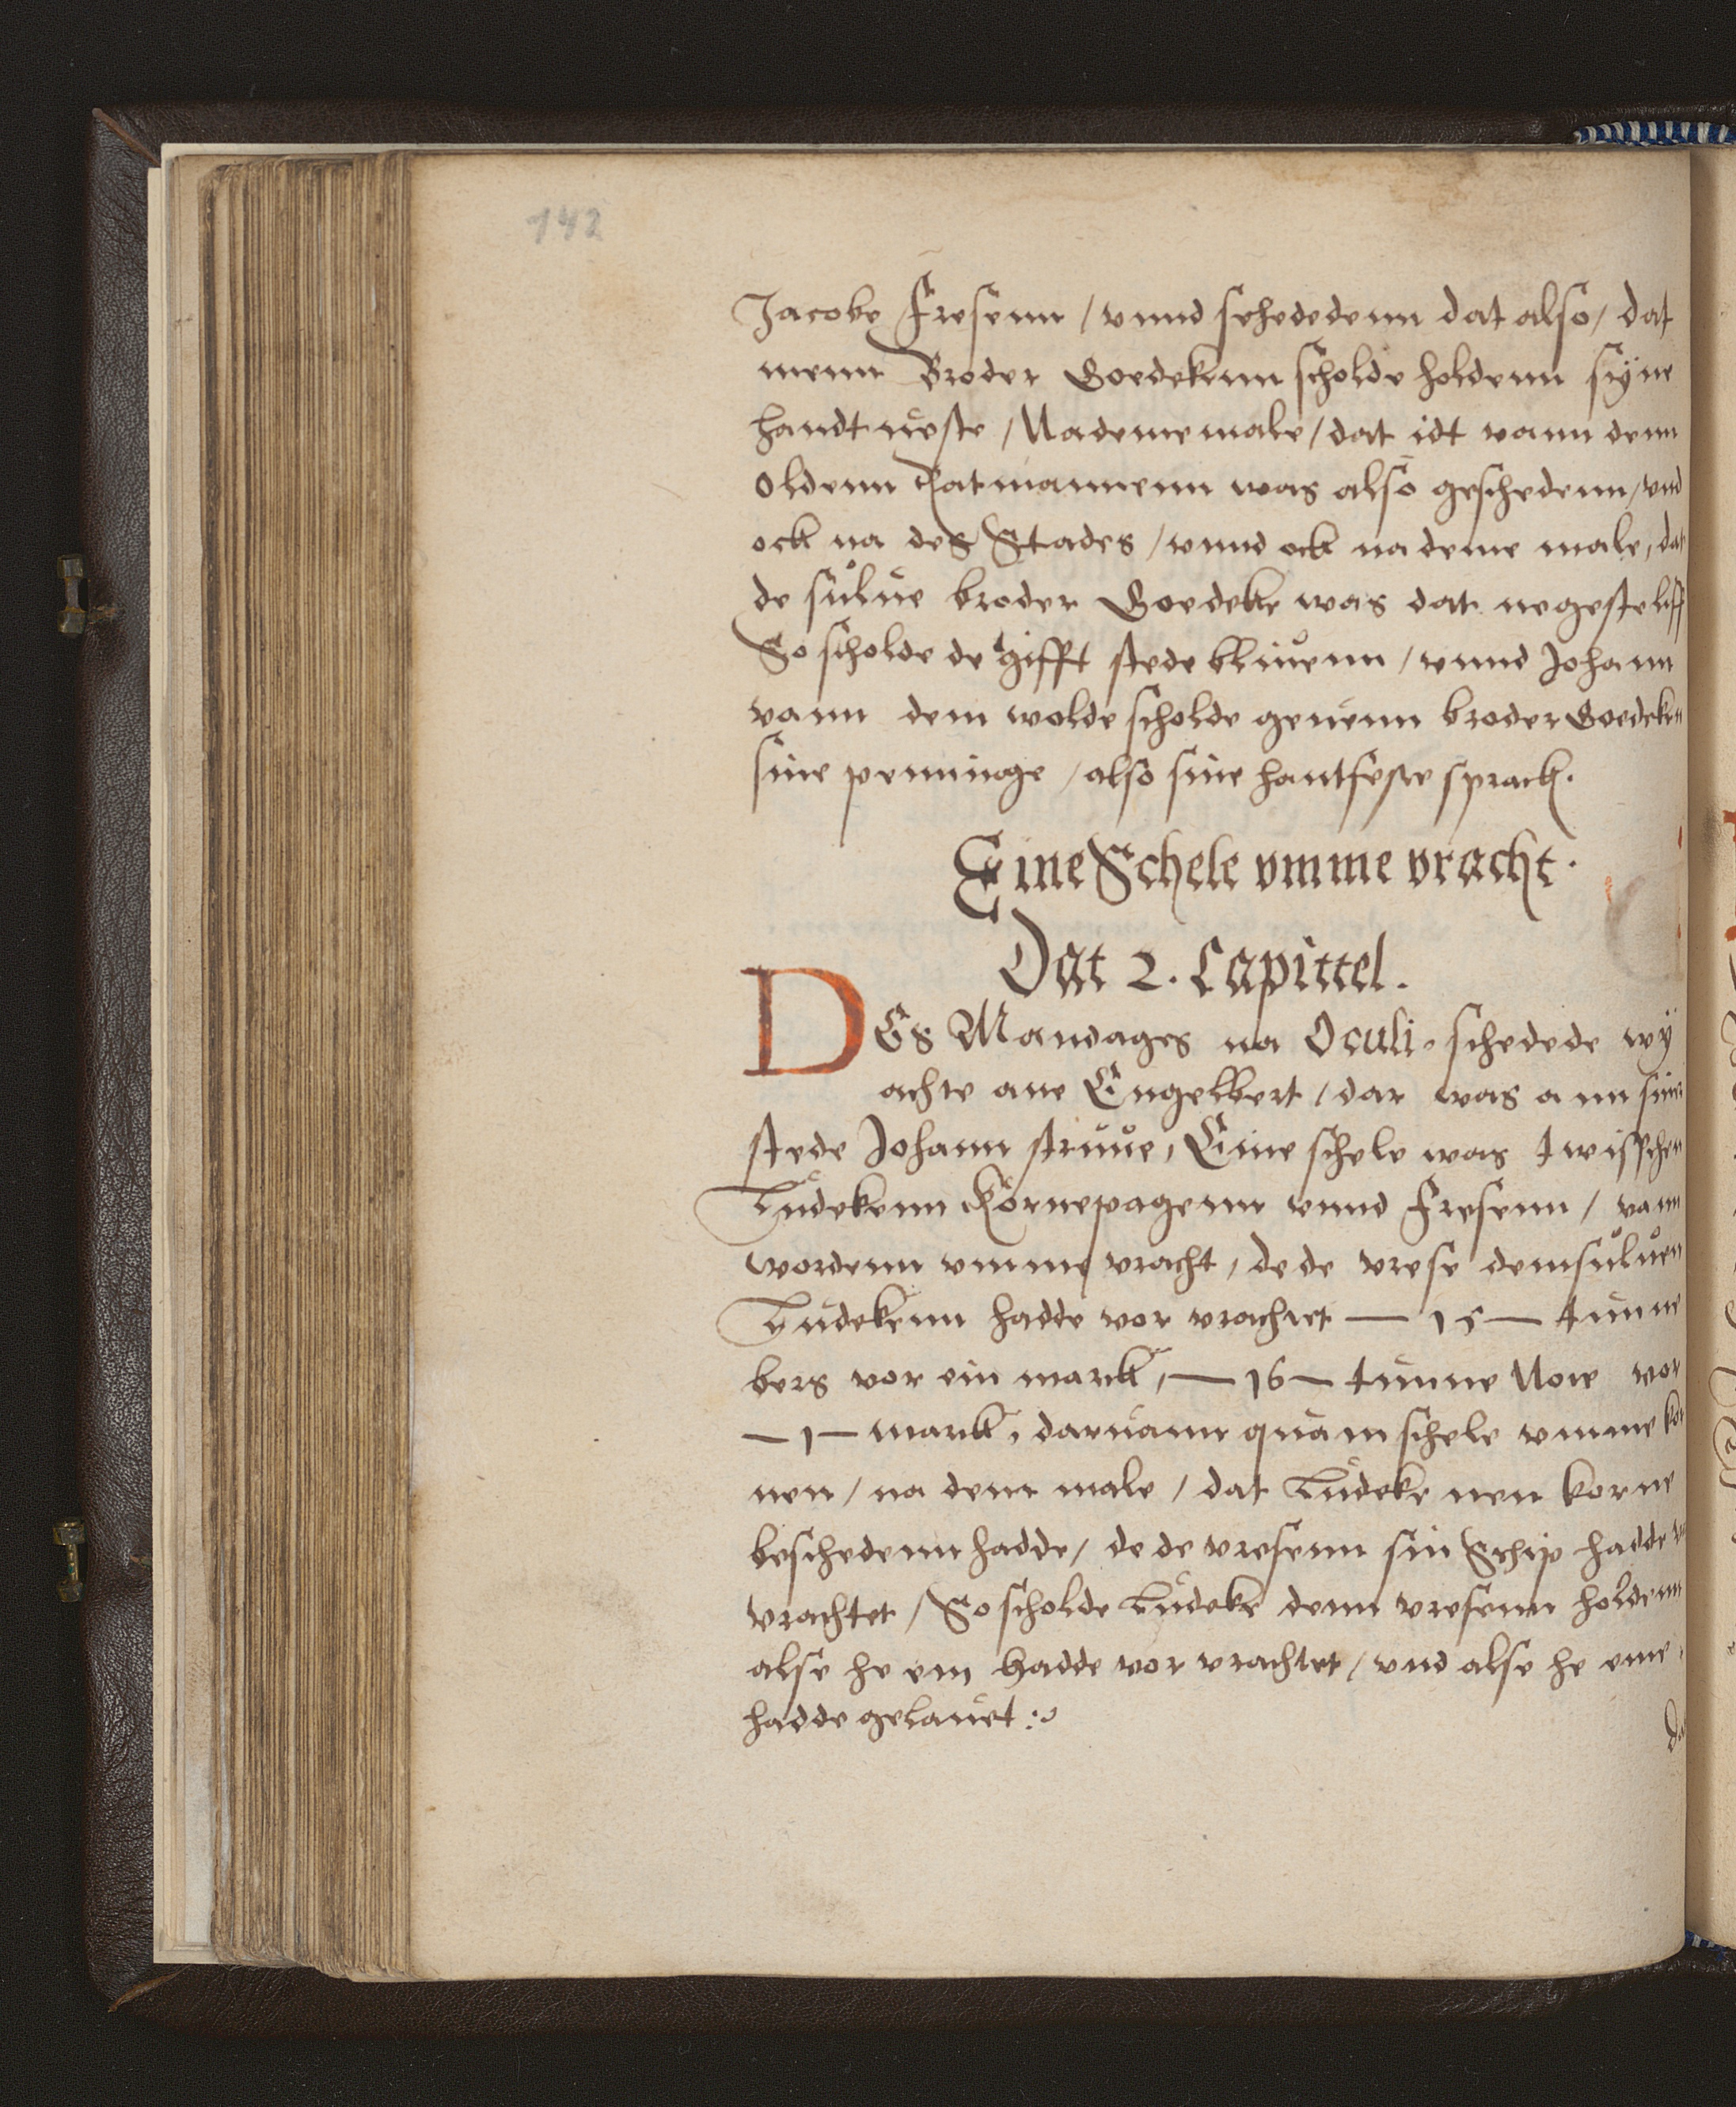 142
Jacobe Fresenn / vnnd schededenn dat also / dat
menn Broder Goedekenn scholde holdenn sÿne
handtueste / Nademe male / dat idt vann denn
oldenn Ratmannenn was also geschedenn / vnd
ock na des Stades / vnnd ock na deme male, dat
de sulue broder Goedeke was dat negeste liff
So scholde de gifft stede bliuenn / vnnd Johann
vann dem wolde scholde geuenn broder Goedeken
sine penninge / also sine hantfeste sprack.
Eine Schele vmme vracht.
Dat 2. Capittel.
DEs Mandages na Oculi. schedede wÿ
achte ane Engelbert / dar was ann siner
stede Johann struue, Eine schele was twisschen
Ludekenn Kornepagenn vnnd Fresenn / vann
wordenn vmme vracht, de de vrese demsuluen
Ludekenn hadde vor vrachtet — 15 — tunne
bers vor ein marck, — 16 — tunne Now vor
— 1 — marck, daruann quam schele vmme kor
nen / na dem male / dat Ludeke nen korne
beschedenn hadde / de de vresenn sin Schip hadde
vrachtet / So scholde Ludeke denn vresenn holdenn
alse he em hadde vor vrachtet / vnd alse he eme
hadde gelauet :